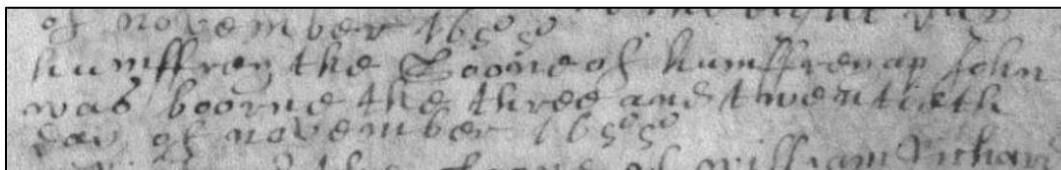 of november 1650
humffrey the Soone of humffrey ap John
was boorne the three and twentieth
day of november 1650
of william Richard